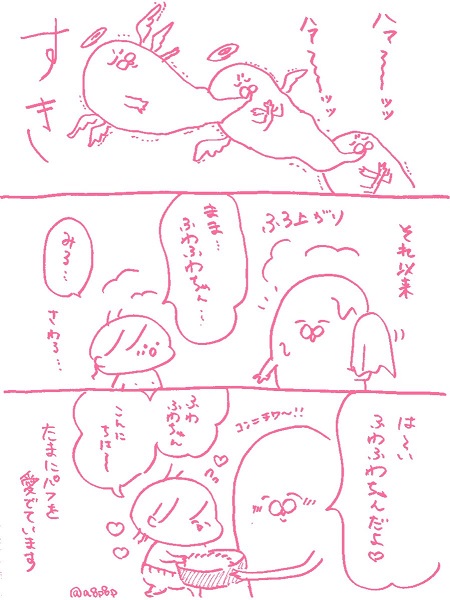 ハァ〜〜ッッ
ハァ〜〜ッッ
すき
それ以来
ふろ上がり
まま…
ふわふわちゃん…
みる…
さわる…
は〜い
ふわふわちゃんだよ♡
コンニチワ〜!!
ふわ
ふわちゃん
こんに
ちは〜
たまにパフを
愛でています
@a8p8p